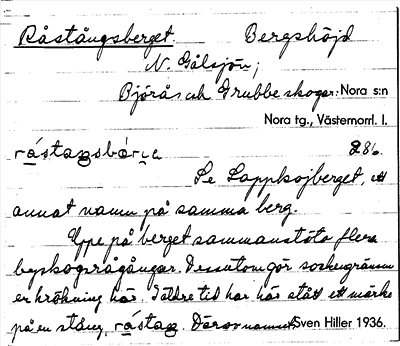 Råstångsberget. Bergshöjd
N. Gålsjön;
Björås och Grubbe skogar. Nora s:n
Nora tg., Västernorrl. l.
råstagsbärje 286.
Se Lappkojberget, ett
annat namn på samma berg.
Uppe på berget sammanstöta flera
byskogsrågångar. Dessutom gör sockengränsen
en krökning här. I äldre tid har här stått ett märke
på en stång, råstag. Därav namnet. Sven Hiller 1936.